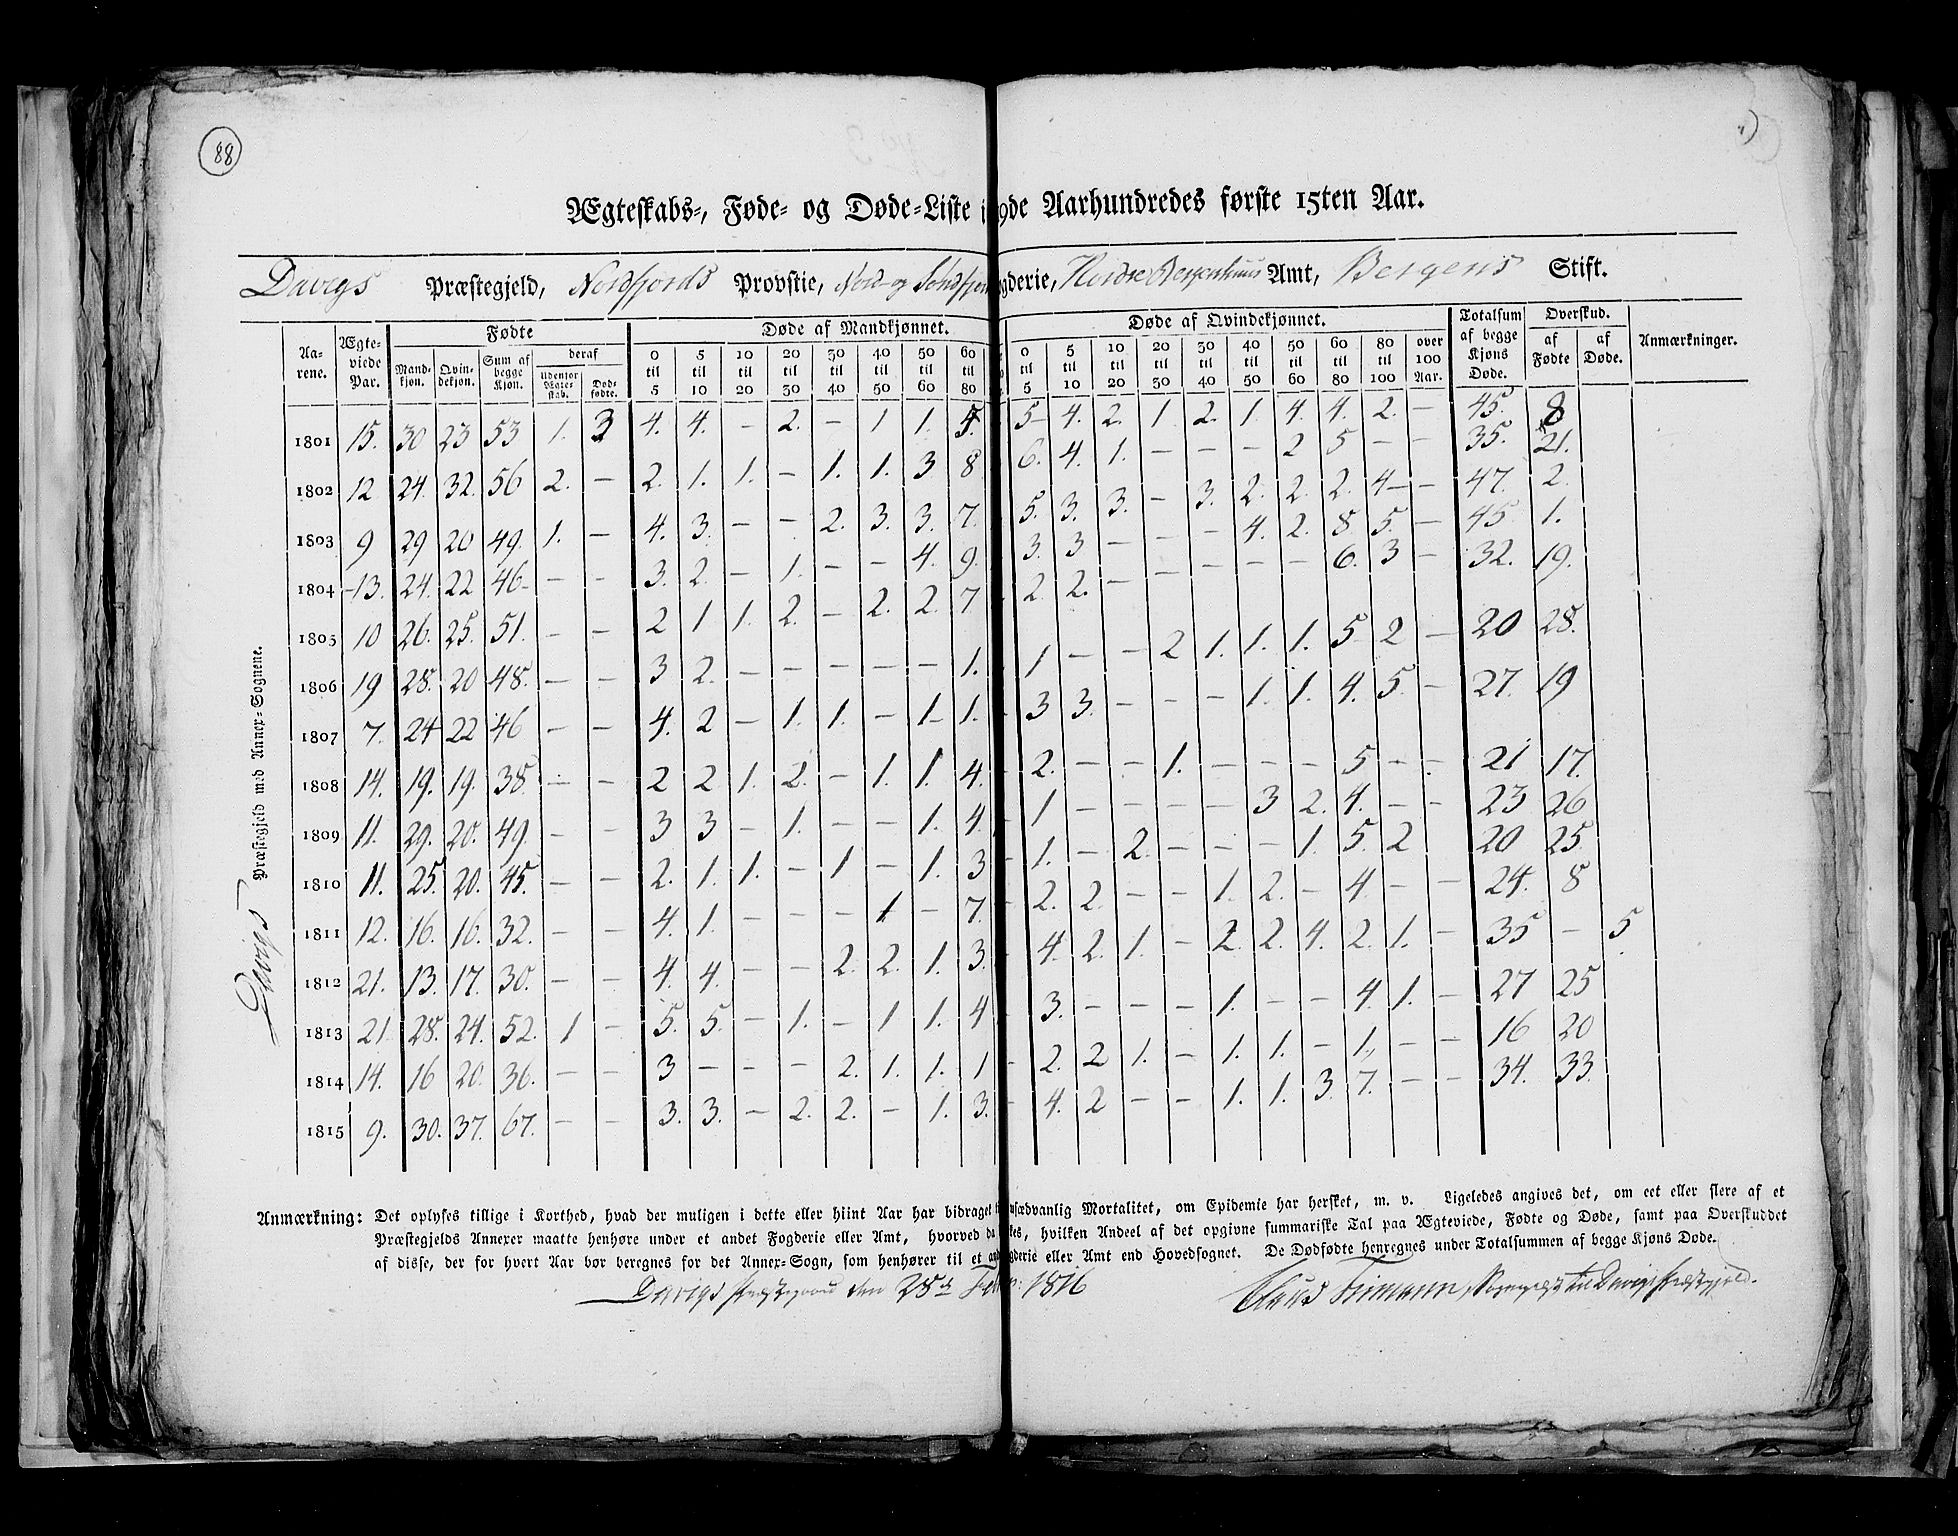 88
Ægteskabs-, Føde- og Døde-Liste i 19de Aarhundredes første 15ten Aar.
Davigs Præstegjeld, Nordfjords Provstie, Nord- og Søndfjords Fogderie, Nordre Bergenhuus Amt, Bergens Stift.
Aarene. Ægteviede Par. Fødte Døde af Mandkjønnet. Døde af Qvindekjønnet. Totalsum af begge Kjøns Døde. Overskud. Anmærkninger.
Mandkjøn. Qvindekjøn. Sum af begge Kjøn. deraf Udenfor Ægteskab. Dødfødte. af Fødte af Døde.
0 til 5 5 til 10 10 til 20 20 til 30 30 til 40 40 til 50 50 til 60 60 til 80 0 til 5 5 til 10 10 til 20 20 til 30 30 til 40 40 til 50 50 til 60 60 til 80 80 til 100 over 100 Aar.
Davigs Præstegjeld med Annex-Sognene.
1801 15. 30 23 53 1. 3 4. 4. — 2. — 1 1. 5. 5 4. 2. 1 2. 1. 4. 4. 2. — 45. 8
1802 12 24. 32. 56 2. — 2. 1. 1. — 1. 1. 3 8 6. 4. 1. — — — 2 5 — — 35. 21.
1803 9 29 20 49. 1. — 4. 3. — — 2. 3. 3. 7. 5. 3. 3. — 3. 2. 2. 2. 4 — 47. 2.
1804 13. 24. 22 46 — — 3. 2. — 1. — — 4. 9. 3. 3 — — — 4. 2. 8 5. — 45. 1.
1805 10 26. 25. 51. — — 2 1 1. 2. — 2. 2. 7 2 2. — — — — — 6. 3 — 32. 19.
1806 19 28. 20 48. — — 3 2. — — — — — 1. 1 — — 2 1. 1. 1. 5 2 — 20 28.
1807 7. 24 22 46 — — 4. 2 — 1. 1. — 1. 1. 3 3. — — — 1. 1. 4. 5. — 27. 19
1808 14. 19. 19. 38. — — 2 2 1. 2. — 1. 1. 4. 2. — — 1. — — — 5 — — 21 17.
1809 11. 29. 20. 49. — — 3 3 — 1. — — 1. 4. 1 — — — — 3 2. 4. — — 23 26
1810 11. 25. 20. 45. — — 2. 1. 1. — 1 — 1. 3 1. — 2. — — — 1. 5. 2 20 25.
1811 12. 16. 16. 32. — — 4. 1. — — — 1 — 7. 2. 2. — — 1. 2. — 4 — — 24. 8
1812 21. 13. 17. 30. — — 4. 4. — — 2. 2. 1. 3. 4. 2. 1. — 2. 2. 4. 2. 1. — 35 — 5
1813 21 28. 24. 52. 1 — 5. 5. — 1. — 1 1. 4 3. — — — 1. — — 4. 1. — 27 25
1814 14. 16 20. 36. — — 3 — — — 2. 1. 1. 1 2. 2 1. — 1. 1. — 1. — — 16 20
1815 9. 30. 37. 67. — — 3. 3. — 2. 2. — 1. 3. 4. 2 — — 1. 1. 3 7. — — 34. 33.
Anmærkning: Det oplyses tillige i Korthed, hvad der muligen i dette eller hiint Aar har bidraget til usædvanlig Mortalitet, om Epidemie har hersket, m. v. Ligeledes angives det, om eet eller flere af et
Præstegjelds Annexer maatte henhøre under et andet Fogderie eller Amt, hvorved da hvilken Andeel af det opgivne summariske Tal paa Ægteviede, Fødte og Døde, samt paa Overskuddet
af disse, der for hvert Aar bør beregnes for det Annex-Sogn, som henhører til et andet Fogderie eller Amt end Hovedsognet. De Dødfødte henregnes under Totalsummen af begge Kjøns Døde.
Davigs Præstegaard den 28de 1816
Claus Frimann, Sogneprest til Davigs Præstegjeld.